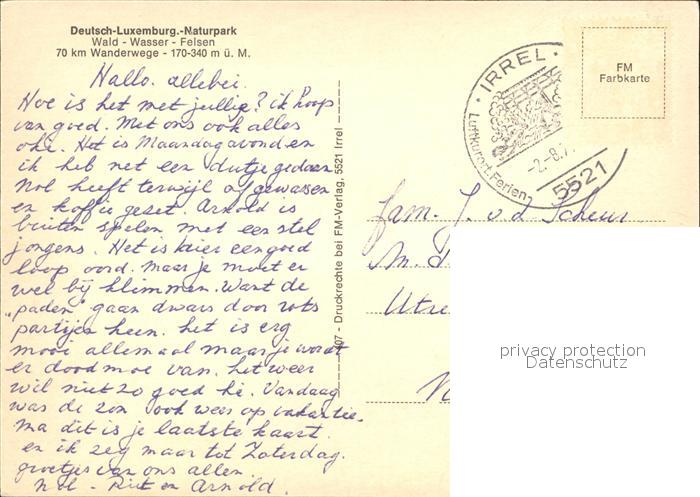 Deutsch-Luxemburg.-Naturpark
Wald - Wasser - Felsen
70 km Wanderwege - 170-340 m ü. M.
Hallo. allebei.
Hoe is het met jullie? ik hoop
van goed. Met ons ook alles
oke. Het is Maandagavond en
ik heb net een dutje gedaan
Nol heeft terwijl afgewassen
en koffie gezet. Arnold is
buiten spelen met een stel
jongens. Het is hier een goed
loop oord. maar je moet er
wel bij klimmen. Want de
"paden" gaan dwars door rots
partijen heen. het is erg
mooi allemaal maar je wordt
er doodmoe van. het weer
wil niet zo goed hè. Vandaag
was de zon ook weer op vakantie.
ma dit is je laatste kaart
en ik zeg maar tot Zaterdag.
groetjes van ons allen
Nol - Riet en Arnold.
07 - Druckrechte bei FM-Verlag, 5521 Irrel
IRREL
Luftkurort, Ferien
-2.-8.7
5521
FM
Farbkarte
fam. J. v. d. Scheur
M.
Utre
N
privacy protection
Datenschutz